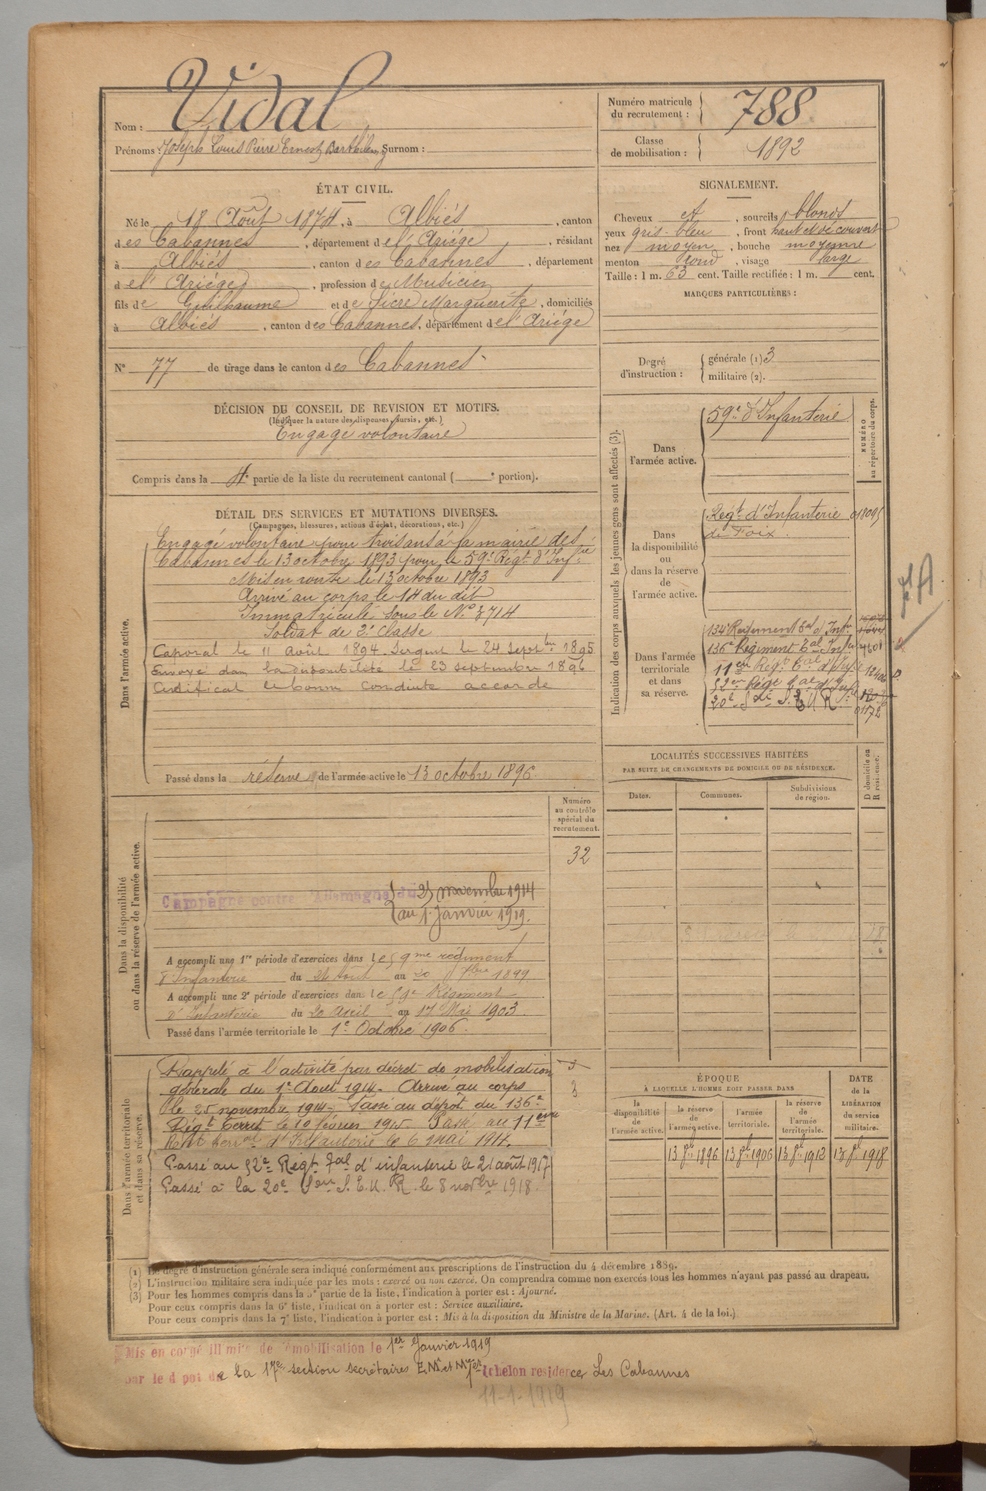 Nom : Vidal
Prénoms : Joseph Louis Pierre Ernest Barthélemy Surnom :
Numéro matricule du recrutement : 788
Classe de mobilisation : 1892
ÉTAT CIVIL.
Né le 18 Août 1874, à Albiès, canton
des Cabannes, département de l'Ariége, résidant
à Albiés, canton des Cabannes, département
de l'Ariége, profession de Musicien
fils de Guilhaume et de Sicre Marguerite, domiciliés
à Albiés, canton des Cabannes, département de l'Ariége
N° 77 de tirage dans le canton des Cabannes
SIGNALEMENT.
Cheveux et, sourcils blonds
yeux gris-bleu, front haut et découvert
nez moyen, bouche moyenne
menton rond, visage large
Taille : 1 m. 63 cent. Taille rectifiée : 1 m. cent.
MARQUES PARTICULIÈRES :
Degré d'instruction :
générale (1) 3
militaire (2).
DÉCISION DU CONSEIL DE REVISION ET MOTIFS.
(Indiquer la nature des dispenses, sursis, etc.)
Engagé volontaire
Compris dans la 4e partie de la liste du recrutement cantonal ( e portion).
DÉTAIL DES SERVICES ET MUTATIONS DIVERSES.
(Campagnes, blessures, actions d'éclat, décorations, etc.)
Dans l'armée active.
Engagé volontaire pour trois ans à la mairie des
Cabannes le 13 octobre 1893 pour le 59e Régt d'Infie
Mis en route le 13 octobre 1893
Arrivé au corps le 14 du dit
Immatriculé sous le N° 3714
Soldat de 2e classe
Caporal le 11 Août 1894. Sergent le 24 Septbre 1895
Envoyé dans la disponibilité le 23 septembre 1896
Certificat de bonne conduite accordé
Passé dans la réserve de l'armée active le 13 octobre 1896
Indication des corps auxquels les jeunes gens sont affectés (3).
NUMÉRO au répertoire du corps.
Dans l'armée active.
59e d'Infanterie
Dans la disponibilité ou dans la réserve de l'armée active.
Régt d'Infanterie
de Foix.
Dans l'armée territoriale et dans sa réserve.
134e Regiment Tal d'Inf.
136e Régiment Tal d'Inf
LOCALITÉS SUCCESSIVES HABITÉES
PAR SUITE DE CHANGEMENTS DE DOMICILE OU DE RÉSIDENCE.
Dates.
Communes.
Subdivisions de région.
D domicile ou R résidence.
Dans la disponibilité ou dans la réserve de l'armée active.
Numéro au contrôle spécial du recrutement.
32
Campagne contre l'Allemagne du 25 novembre 1914
au 1 Janvier 1919.
A accompli une 1re période d'exercices dans le 59me régiment
d'Infanterie du 24 Août au 20 7bre 1899
A accompli une 2e période d'exercices dans le 59e Régiment
d'Infanterie du 20 Avril au 17 Mai 1903
Passé dans l'armée territoriale le 1e Octobre 1906.
Dans l'armée territoriale et dans sa réserve.
Rappelé à l'activité par décret de mobilisation
générale du 1e Août 1914. Arrivé au corps
le 25 novembre 1914. Passé au dépôt du 136e
Régt territ le 10 février 1915 Passé au 11eme
le 6 mai 1917.
Passé au 52e Régt Tal d'infanterie le 21 août 1917
Passé à la 20e Son S.E.M.R. le 8 novbre 1918.
3
ÉPOQUE
À LAQUELLE L'HOMME DOIT PASSER DANS
la disponibilité de l'armée active.
la réserve de l'armée active.
l'armée territoriale.
la réserve de l'armée territoriale.
DATE de la LIBÉRATION du service militaire.
13 8e 1896
13 8e 1906
13 8e 1912
13 8e 1918
(1) Le degré d'instruction générale sera indiqué conformément aux prescriptions de l'instruction du 4 décembre 1889.
(2) L'instruction militaire sera indiquée par les mots : exercé ou non exercé. On comprendra comme non exercés tous les hommes n'ayant pas passé au drapeau.
(3) Pour les hommes compris dans la 5e partie de la liste, l'indication à porter est : Ajourné.
Pour ceux compris dans la 6e liste, l'indication à porter est : Service auxiliaire.
Pour ceux compris dans la 7e liste, l'indication à porter est : Mis à la disposition du Ministre de la Marine. (Art. 4 de la loi.)
Mis en congé illimité de démobilisation le 1er Janvier 1919
par le dépôt de la 17e section secrétaires E.M. échelon résidence Les Cabannes
11-1-1919